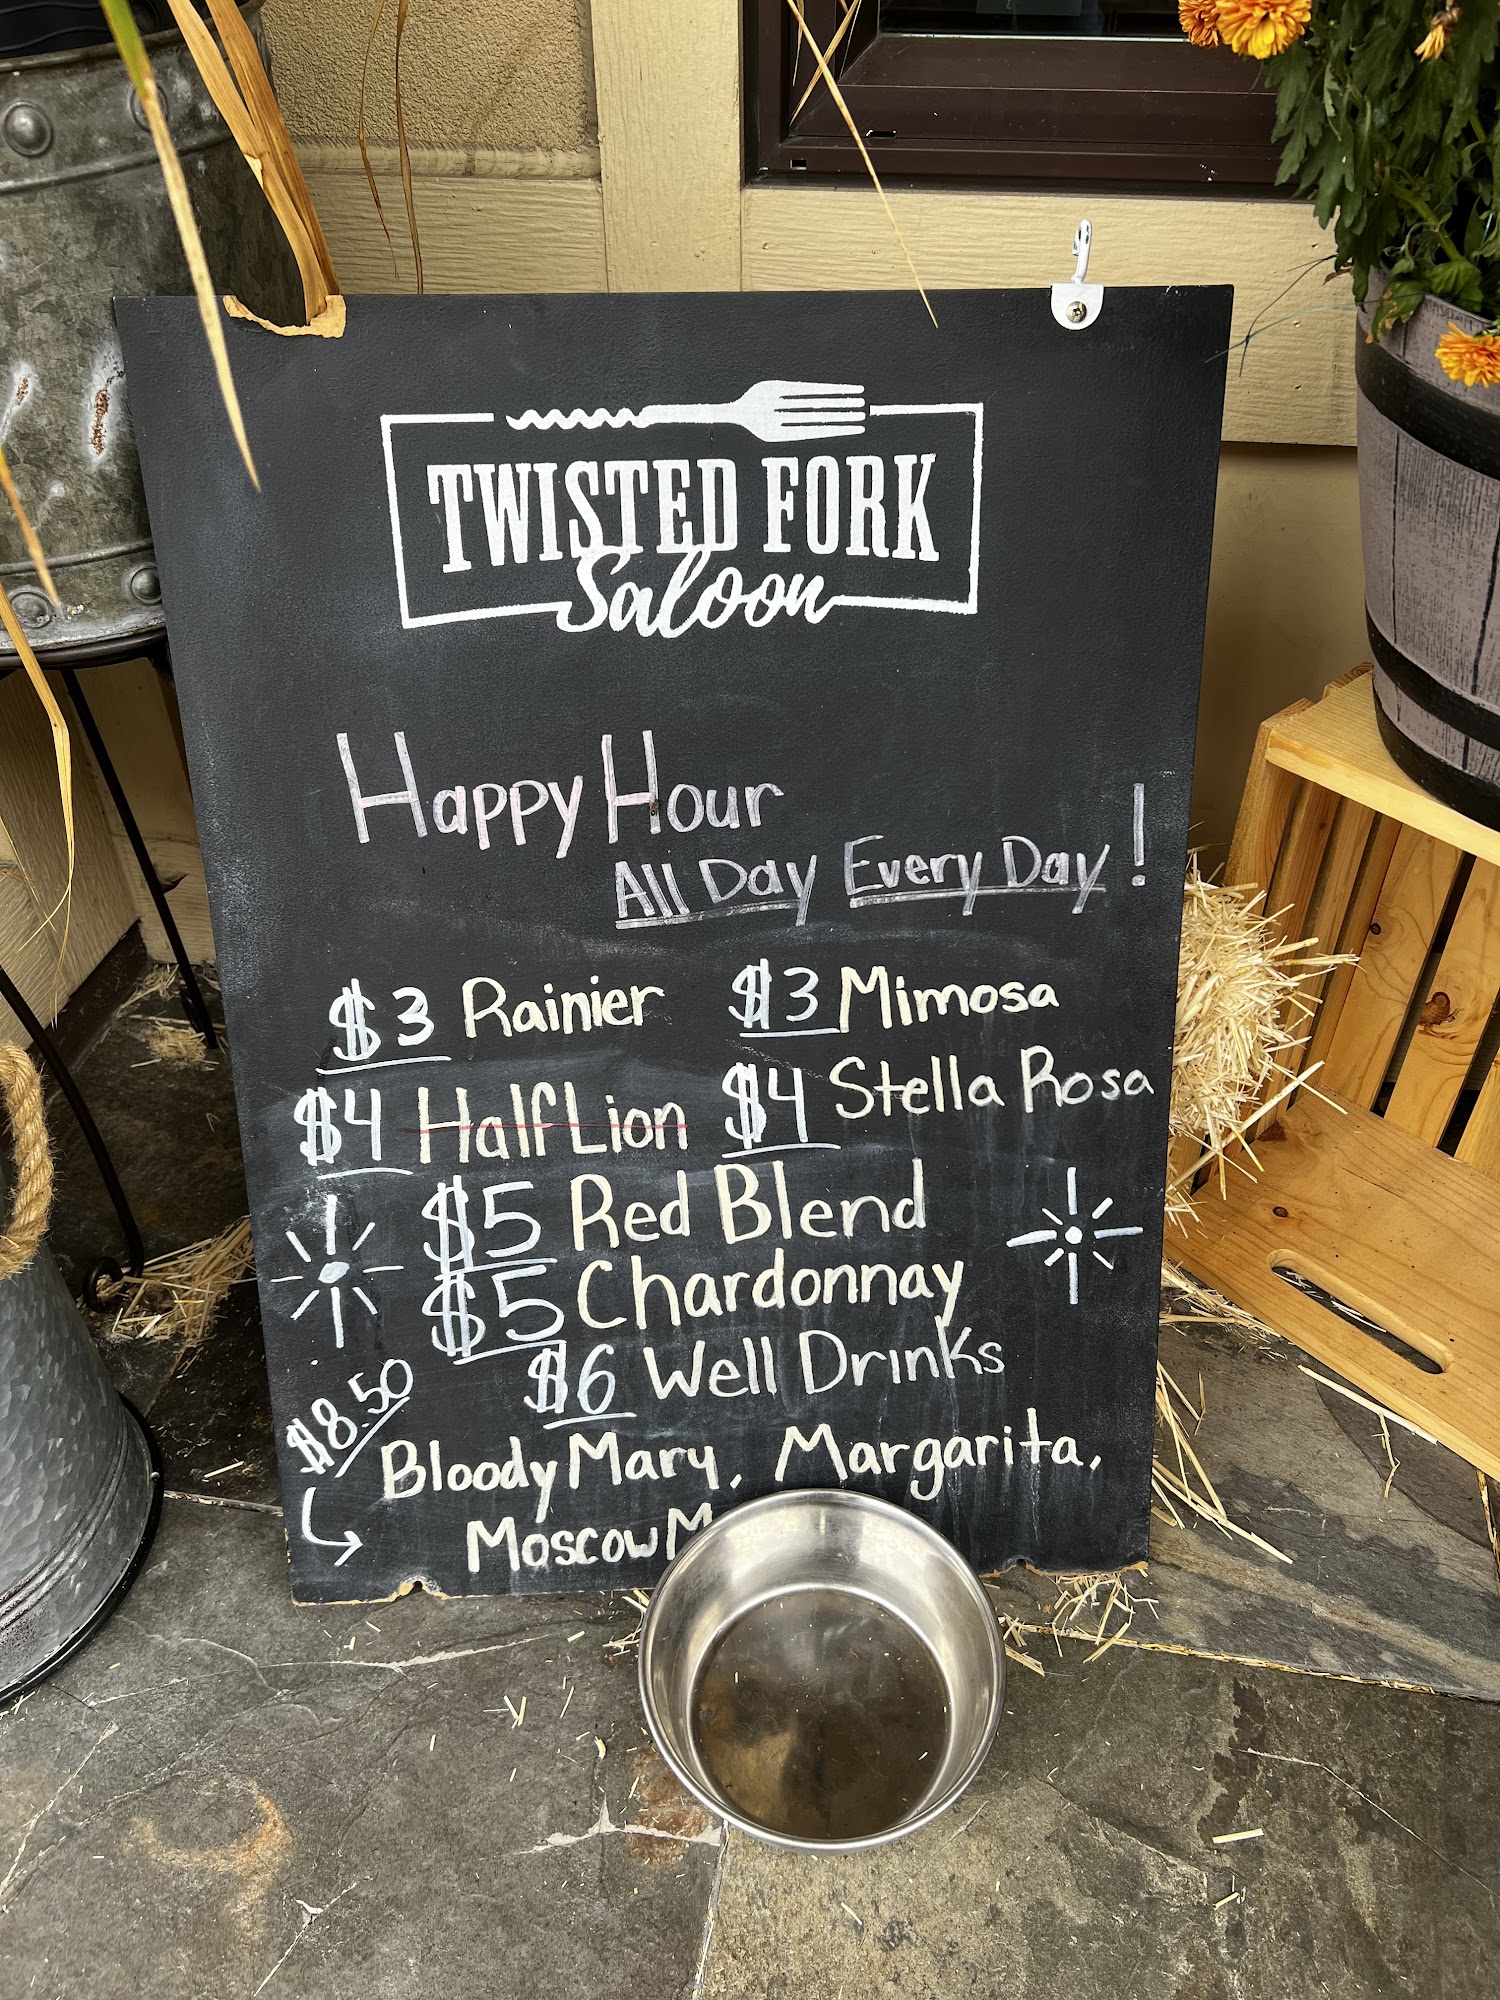 TWISTED FORK
Saloon
Happy Hour
All Day Every Day!
$3 Rainier $3 Mimosa
$4 Half Lion $4 Stella Rosa
$5 Red Blend
$5 Chardonnay
$6 Well Drinks
$8.50
Bloody Mary, Margarita,
Moscow M